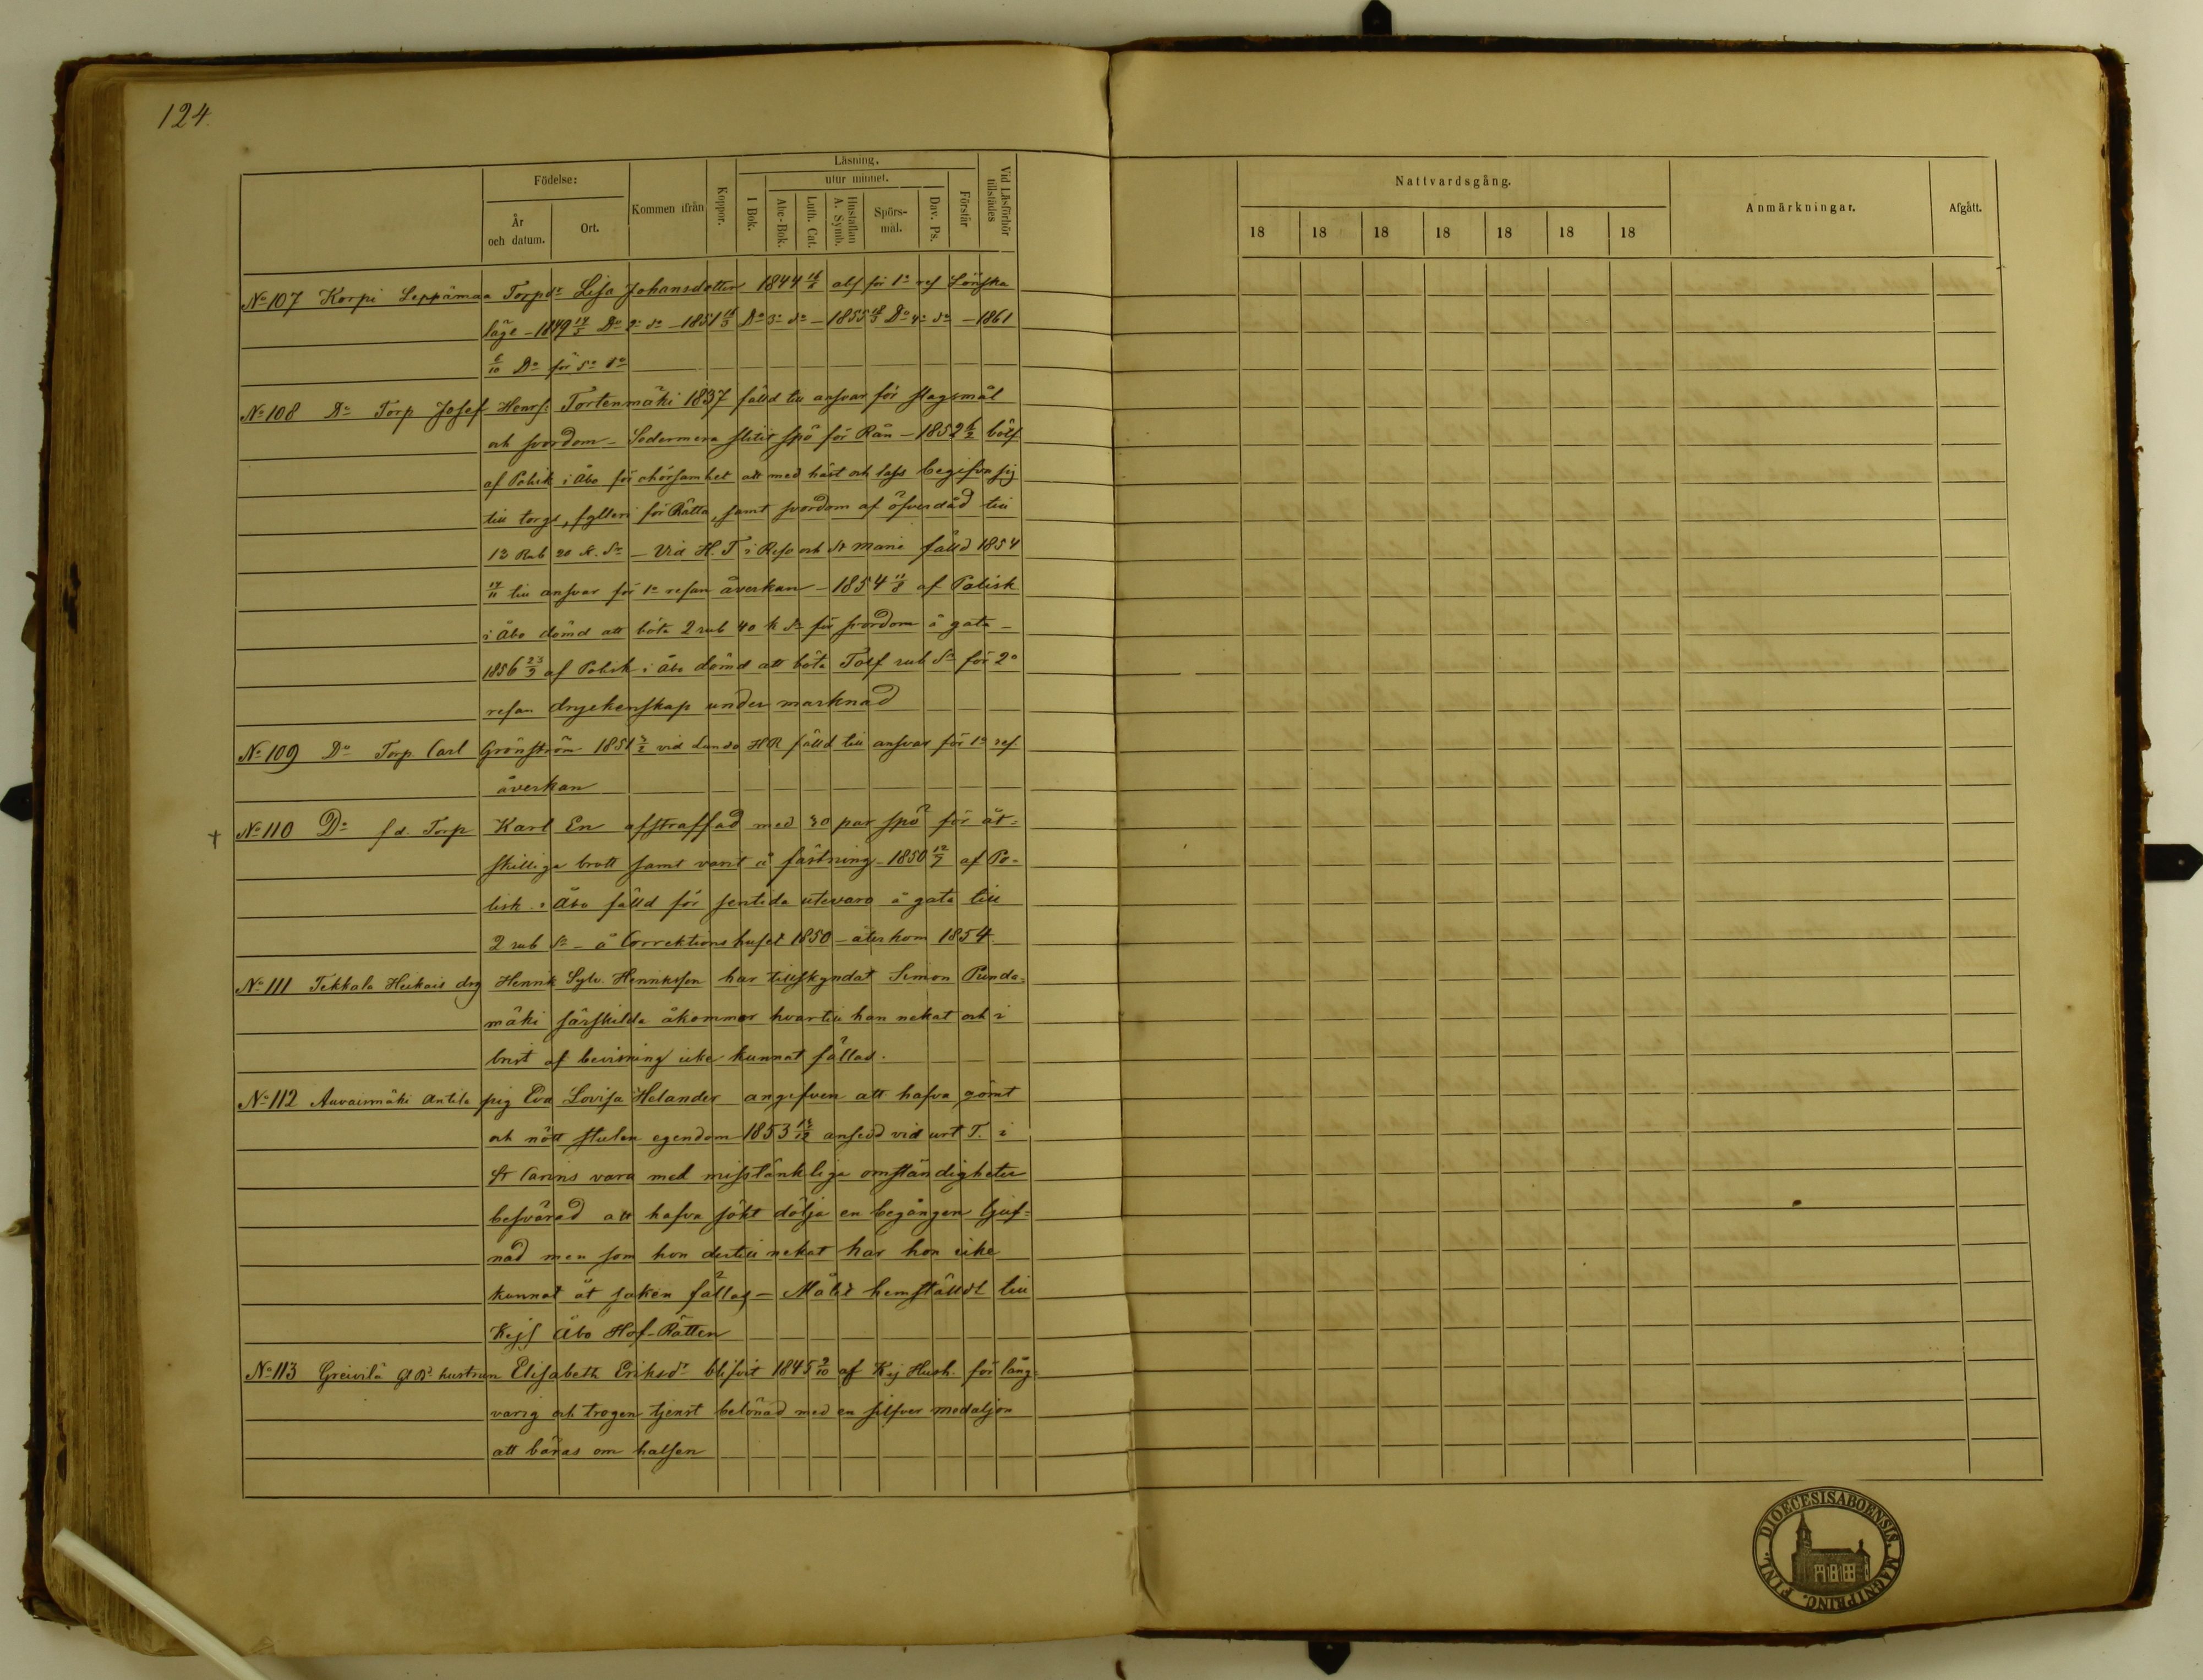 124.
Födelse:
År och datum.
Ort.
Kommen ifrån
Koppor.
Läsning.
utur minnet.
I Bok.
Abc-Bok.
Luth. Cat.
Hustaflan A. Symb.
Spörs-mål.
Dav. Ps.
Förstår
Vid Läsförhör tillstädes
Nattvardsgång.
18 18 18 18 18 18 18
Anmärkningar.
Afgått.
No 107 Korpi Leppämaa Torpdr Lisa Johansdotter 1844 abs för 1a res Lönska
läge - 1849 Do 2a do - 1851 Do 3a do - 1855 Do 4a do - 1861
6/10 Do för 5a do
No 108 Do Torp Josef Henrs: Tortenmäki 1837 fälld till ansvar för slagsmål
och svordom - Sedermera slitit spö för Rån - 1852 böt
af Polisk i Åbo för ohörsamhet att med häst och lass begifva sig
till torgs, fylleri för Rätta, samt svordom af öfverdåd till
12 Rub 20 k. Sr - Vid H. T i Reso och St Marie fälld 1854
till ansvar för 1a resan åverkan - 1854 11/8 af Polisk
i Åbo dömd att böta 2 rub 40 k Sr för svordom å gata -
1856 23/9 af Polisk i Åbo dömd att böta Tolf rub Sr för 2a
resan dryckenskap under marknad
No 109 Do Torp Carl Grönström 1851 vid Lundo HR fälld till ansvar för 1a res.
åverkan
No 110 Do f d. Torp Karl En afstraffad med 30 par spö för åt-
skilliga brott samt varit å fästning - 1850 12/9 af Po-
lisk i Åbo fälld för sentida utevaro å gata till
2 rub Sr - å Correktionshuset 1850 - återkom 1854
No 111 Tekkala Heikais drg Henrik Sylv. Henriksson har tillskyndat Simon Punda-
mäki särskilda åkommor hvartill han nekat och i
brist af bevisning icke kunnat fällas.
No 112 Auvaismäki Antila pig Eva Lovisa Helander angifven att hafva gömt
och nött stulen egendom 1853 ansedd vid urt T. i
St Carins vara med misstänkliga omständigheter
besvärad att hafva sökt dölja en begången tjuf-
nad men som hon dertill nekat har hon icke
kunnat åt saken fällas - Målet hemställdt till
Kejs Åbo Hof-Rätten
No 113 Greivilä hustrun Elisabeth Eriksdr blifvit 1845 9/10 af Kej Hush. för lång-
varig och trogen tjenst belönad med en silfver medaljon
att bäras om halsen
FINL. DIOECESIS ABOENSIS. MAGNI PRINC.